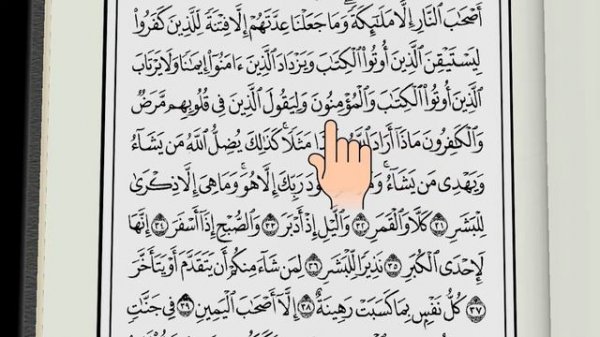 أَصْحَٰبَ ٱلنَّارِ إِلَّا مَلَٰٓئِكَةً ۙ وَمَا جَعَلْنَا عِدَّتَهُمْ إِلَّا فِتْنَةً لِّلَّذِينَ كَفَرُوا۟
لِيَسْتَيْقِنَ ٱلَّذِينَ أُوتُوا۟ ٱلْكِتَٰبَ وَيَزْدَادَ ٱلَّذِينَ ءَامَنُوٓا۟ إِيمَٰنًا ۙ وَلَا يَرْتَابَ
ٱلَّذِينَ أُوتُوا۟ ٱلْكِتَٰبَ وَٱلْمُؤْمِنُونَ ۙ وَلِيَقُولَ ٱلَّذِينَ فِى قُلُوبِهِم مَّرَضٌ
وَٱلْكَٰفِرُونَ مَاذَآ أَرَادَ مَثَلًا ۚ كَذَٰلِكَ يُضِلُّ ٱللَّهُ مَن يَشَآءُ
وَيَهْدِى مَن يَشَآءُ ۚ رَبِّكَ إِلَّا هُوَ ۚ وَمَا هِىَ إِلَّا ذِكْرَىٰ
لِلْبَشَرِ ٣١ كَلَّا وَٱلْقَمَرِ ٣٢ وَٱلَّيْلِ إِذْ أَدْبَرَ ٣٣ وَٱلصُّبْحِ إِذَآ أَسْفَرَ ٣٤ إِنَّهَا
لَإِحْدَى ٱلْكُبَرِ ٣٥ نَذِيرًا لِّلْبَشَرِ ٣٦ لِمَن شَآءَ مِنكُمْ أَن يَتَقَدَّمَ أَوْ يَتَأَخَّرَ
٣٧ كُلُّ نَفْسٍۭ بِمَا كَسَبَتْ رَهِينَةٌ ٣٨ إِلَّآ أَصْحَٰبَ ٱلْيَمِينِ ٣٩ فِى جَنَّٰتٍ